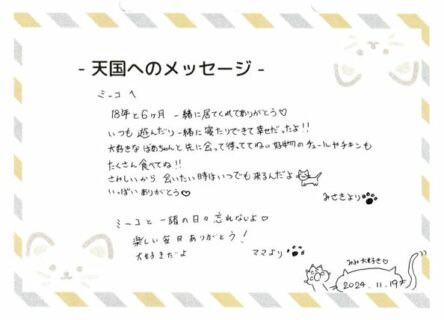 - 天国へのメッセージ -
ミーコへ
18年と6ヶ月 一緒に居てくれてありがとう♡
いつも遊んだり一緒に寝たりできて幸せだったよ!!
大好きなばあちゃんと先に会って待っててね。好物のチュールやチキンも
たくさん食べてね!!
さみしいから会いたい時はいつでも来るんだよ
いっぱいありがとう♡
みさきより
ミーコと一緒の日々忘れないよ♡
楽しい毎日ありがとう!
大好きだよ
ママより
みみ大好き♡
2024.11.19